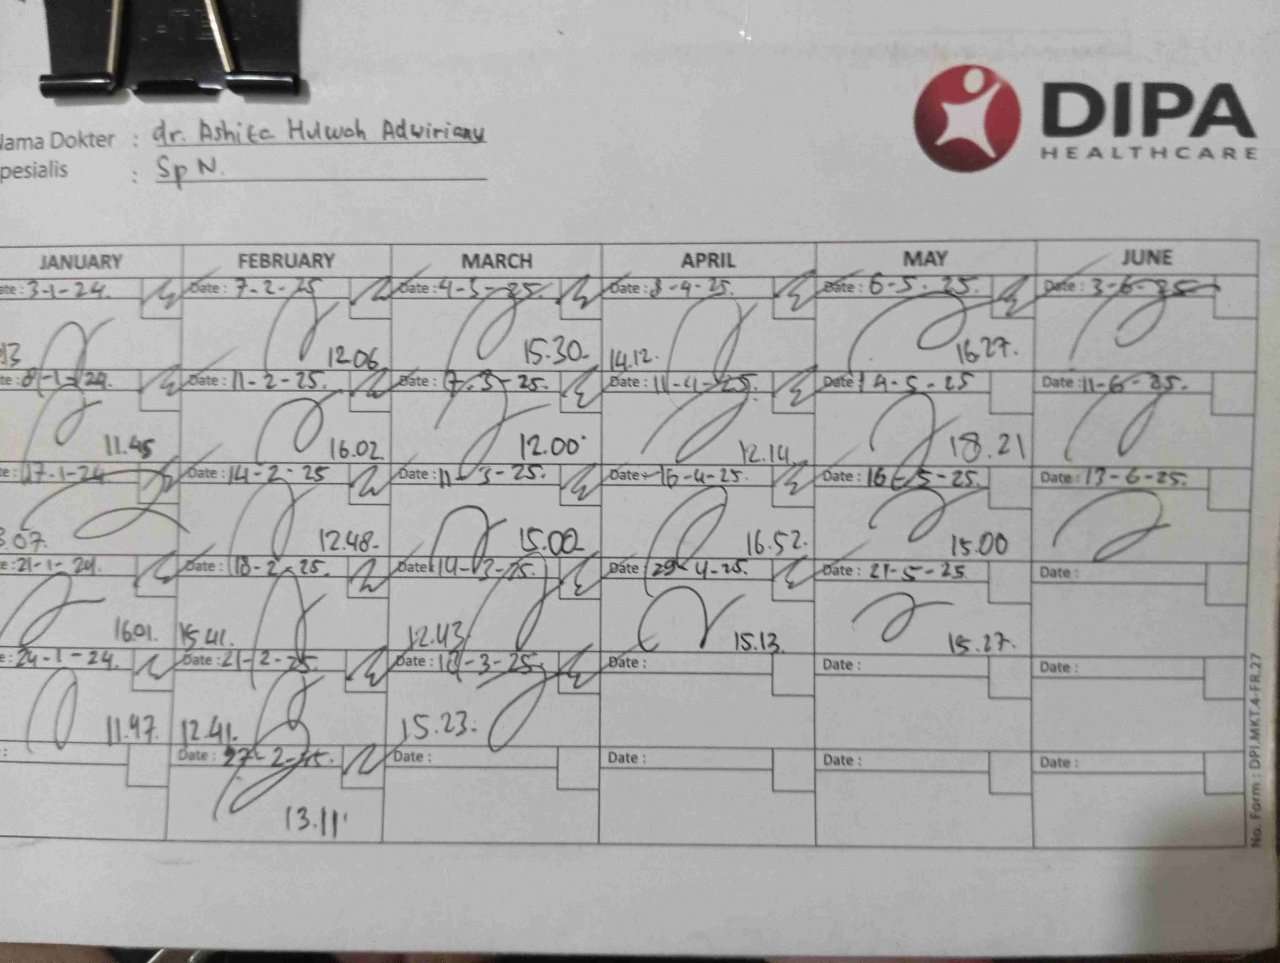 DIPA
HEALTHCARE
Nama Dokter : dr. Ashita Hulwah Adwiriany
pesialis : Sp N.
JANUARY FEBRUARY MARCH APRIL MAY JUNE
ate: 3-1-24. Date: 7-2-25 Date: 4-3-25. Date: 8-4-25. Date: 6-5-25. Date: 3-6-25
13 12.06 15.30. 14.12. 16.27.
te: 8-1-24. Date: 11-2-25. Date: 7-3-25. Date: 11-4-25. Date: 14-5-25 Date: 11-6-25.
11.45 16.02 12.00 12.14 18.21
te: 17-1-24 Date: 14-2-25 Date: 11-3-25. Date: 16-4-25. Date: 16-5-25. Date: 13-6-25.
3.07. 12.48. 15.00 16.52. 15.00
e: 21-1-24. Date: 18-2-25. Date: 14-3-25. Date: 29-4-25. Date: 21-5-25 Date :
16.01. 15.41. 12.43 15.13. 15.27.
e: 24-1-24. Date: 21-2-25 Date: 18-3-25. Date : Date : Date :
11.47. 12.41. 15.23.
: Date: 27-2-25. Date : Date : Date : Date :
13.11
No. Form : DPI.MKT.4-FR.27